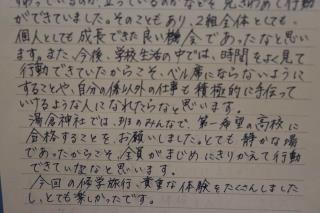 わっているのか、立っているのかなどを見きわめて行動
ができていました。そのこともあり、2組全体としても、
個人としても成長できた良い機会であったなと思い
ます。また、今後、学校生活の中では、時間をよく見て
行動できていたからこそ、ベル席にならないように
することや、自分の係以外の仕事も積極的に手伝って
いけるような人になれたらなと思います。
湯倉神社では、班のみんなで、第一希望の高校に
合格することを、お願いしました。とても静かな場
であったからこそ、全員がまじめにきりかえて行動
できていたなと思います。
今回の修学旅行、貴重な体験をたくさんしました
し、とても楽しかったです。